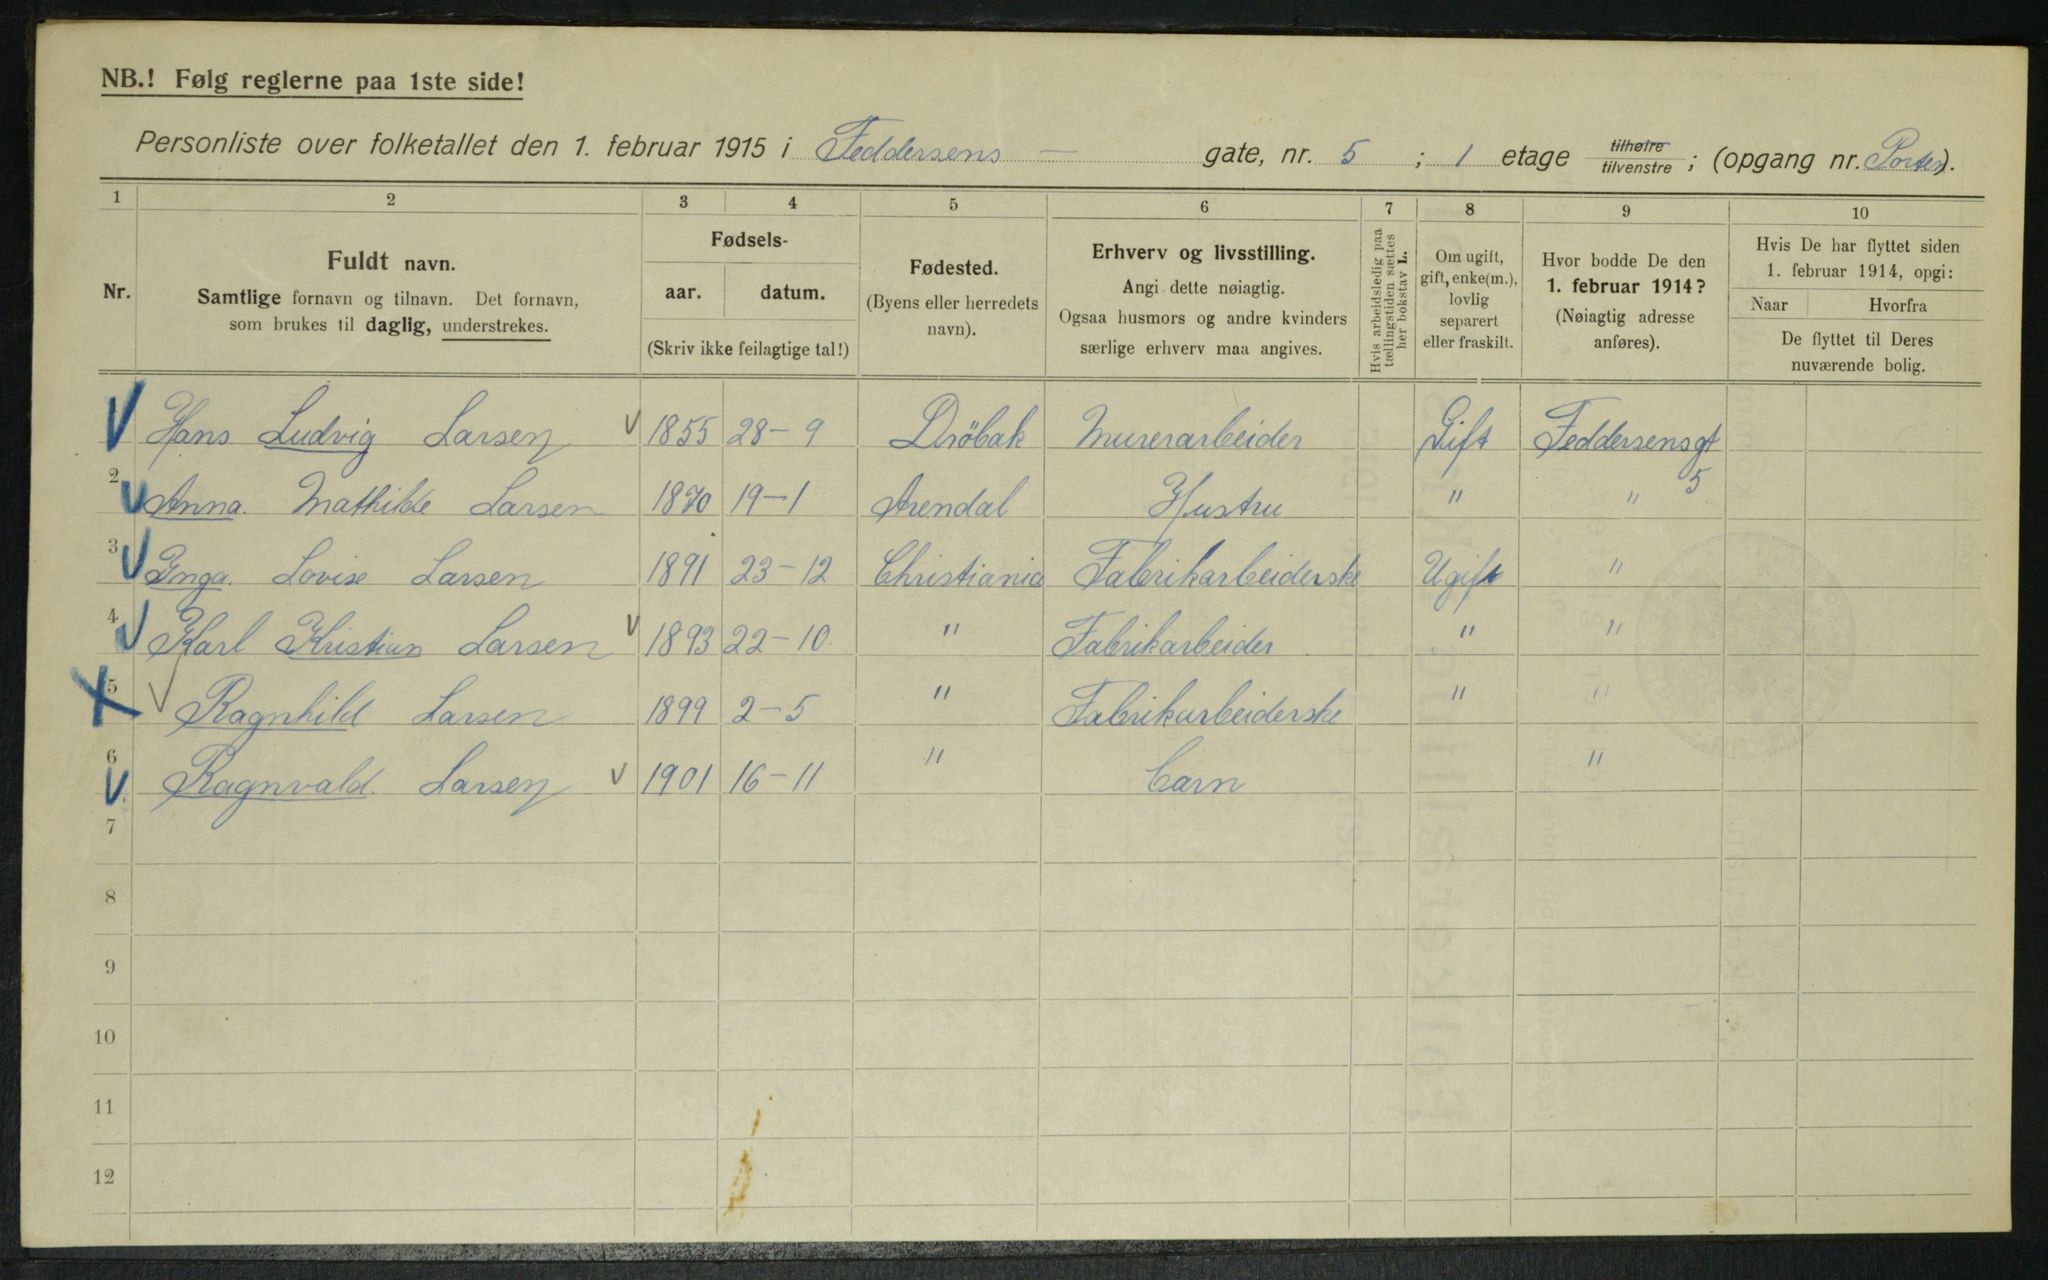 NB.! Følg reglerne paa 1ste side!
Personliste over folketallet den 1. februar 1915 i Feddersens — gate, nr. 5 ; 1 etage tilhøire tilvenstre ; (opgang nr. Porten).
1 2 3 4 5 6 7 8 9 10
Nr.
Fuldt navn.
Samtlige fornavn og tilnavn. Det fornavn,
som brukes til daglig, understrekes.
Fødsels-
aar. datum.
(Skriv ikke feilagtige tal!)
Fødested.
(Byens eller herredets
navn).
Erhverv og livsstilling.
Angi dette nøiagtig.
Ogsaa husmors og andre kvinders
særlige erhverv maa angives.
Hvis arbeidsledig paa
tællingstiden sættes
her bokstav L.
Om ugift,
gift, enke(m.),
lovlig
separert
eller fraskilt.
Hvor bodde De den
1. februar 1914?
(Nøiagtig adresse
anføres).
Hvis De har flyttet siden
1. februar 1914, opgi:
Naar Hvorfra
De flyttet til Deres
nuværende bolig.
Hans Ludvig Larsen 1855 28-9 Dröbak Murerarbeider Gift Feddersensgt 5
2 Anna. Mathilde Larsen 1870 19-1 Arendal Hustru " "
3 Inga. Lovise Larsen 1891 23-12 Christiania Fabrikarbeiderske Ugift "
4 Karl Kristian Larsen 1893 22-10. " Fabrikarbeider " "
5 Ragnhild Larsen 1899 2-5 " Fabrikarbeiderske " "
6 Ragnvald. Larsen 1901 16-11 " barn "
7
8
9
10
11
12